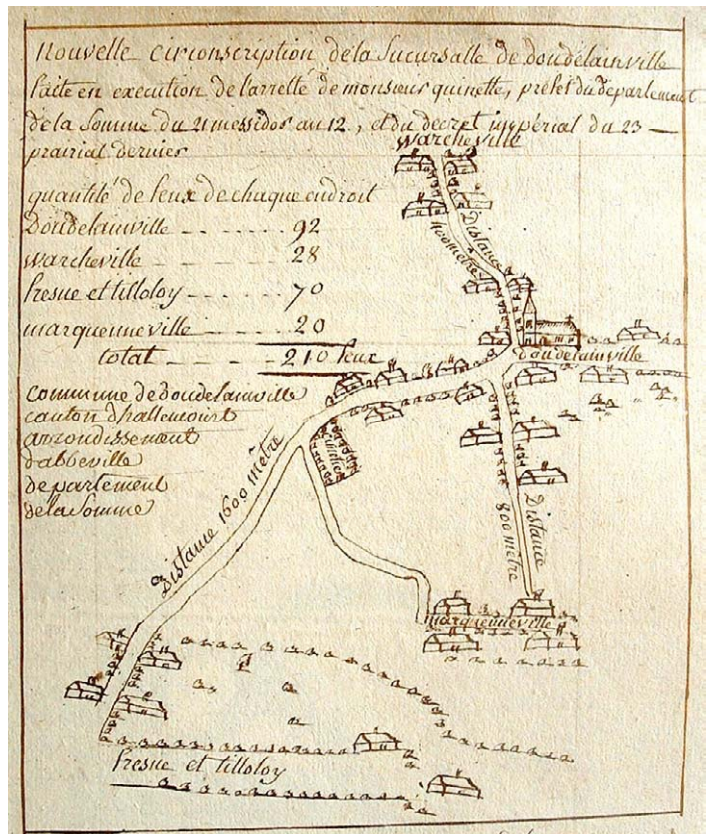 nouvelle circonscription de la Sucursalle de doudelainville
faite en execution de larrellé de monsieur quinette, préfet du departement
de la Somme du 21 messidor an 12, et du decret impérial du 23
prairial dernier
quantité de feux de chaque endroit
Doudelainville 92
warcheville 28
fresne et tilloloy 70
marquenneville 20
total 210 feux
commune de doudelainville
canton d'hallencourt
arrondissement
d'abbeville
departement
de la Somme
warcheville
Distance
mètre
doudelainville
cimetière
Distance 1600 mètre
Distance
800 mètre
marquenneville
fresne et tilloloy